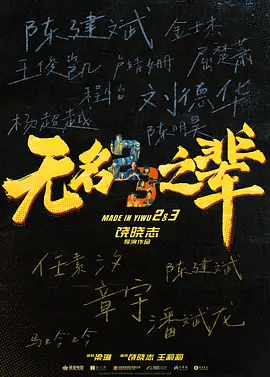 陈建斌 金士杰
王俊凯 卢靖姗 屈楚萧
程怡 刘德华
杨超越 陈明昊
无名之辈
2&3
MADE IN YIWU 2&3
饶晓志
导演作品
任素汐 陈建斌
章宇
马吟吟 潘斌龙
监制 梁琳 编剧 饶晓志 王莉莉